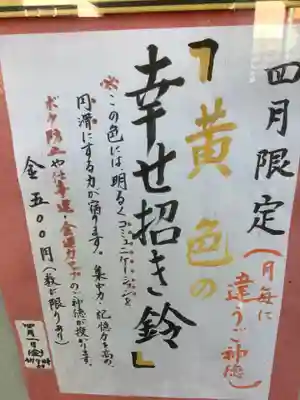 四月限定
(月毎に
違うご神徳)
「黄色の
幸せ招き鈴」
※この色には明るくコミュニケーションを
円滑にする力が宿ります。集中力、記憶力を高め、
ボケ防止や仕事運・金運力アップのご神徳が授かります。
金 五〇〇円(数に限りあり)
四月一日(金)